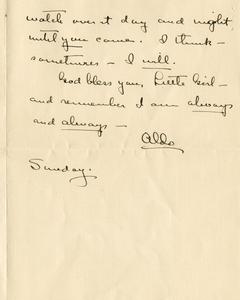 watch over it day and night,
until you come. I think –
sometimes – I will.
God bless you, Little Girl –
and remember I am always
and always –
Aldo
Sunday.